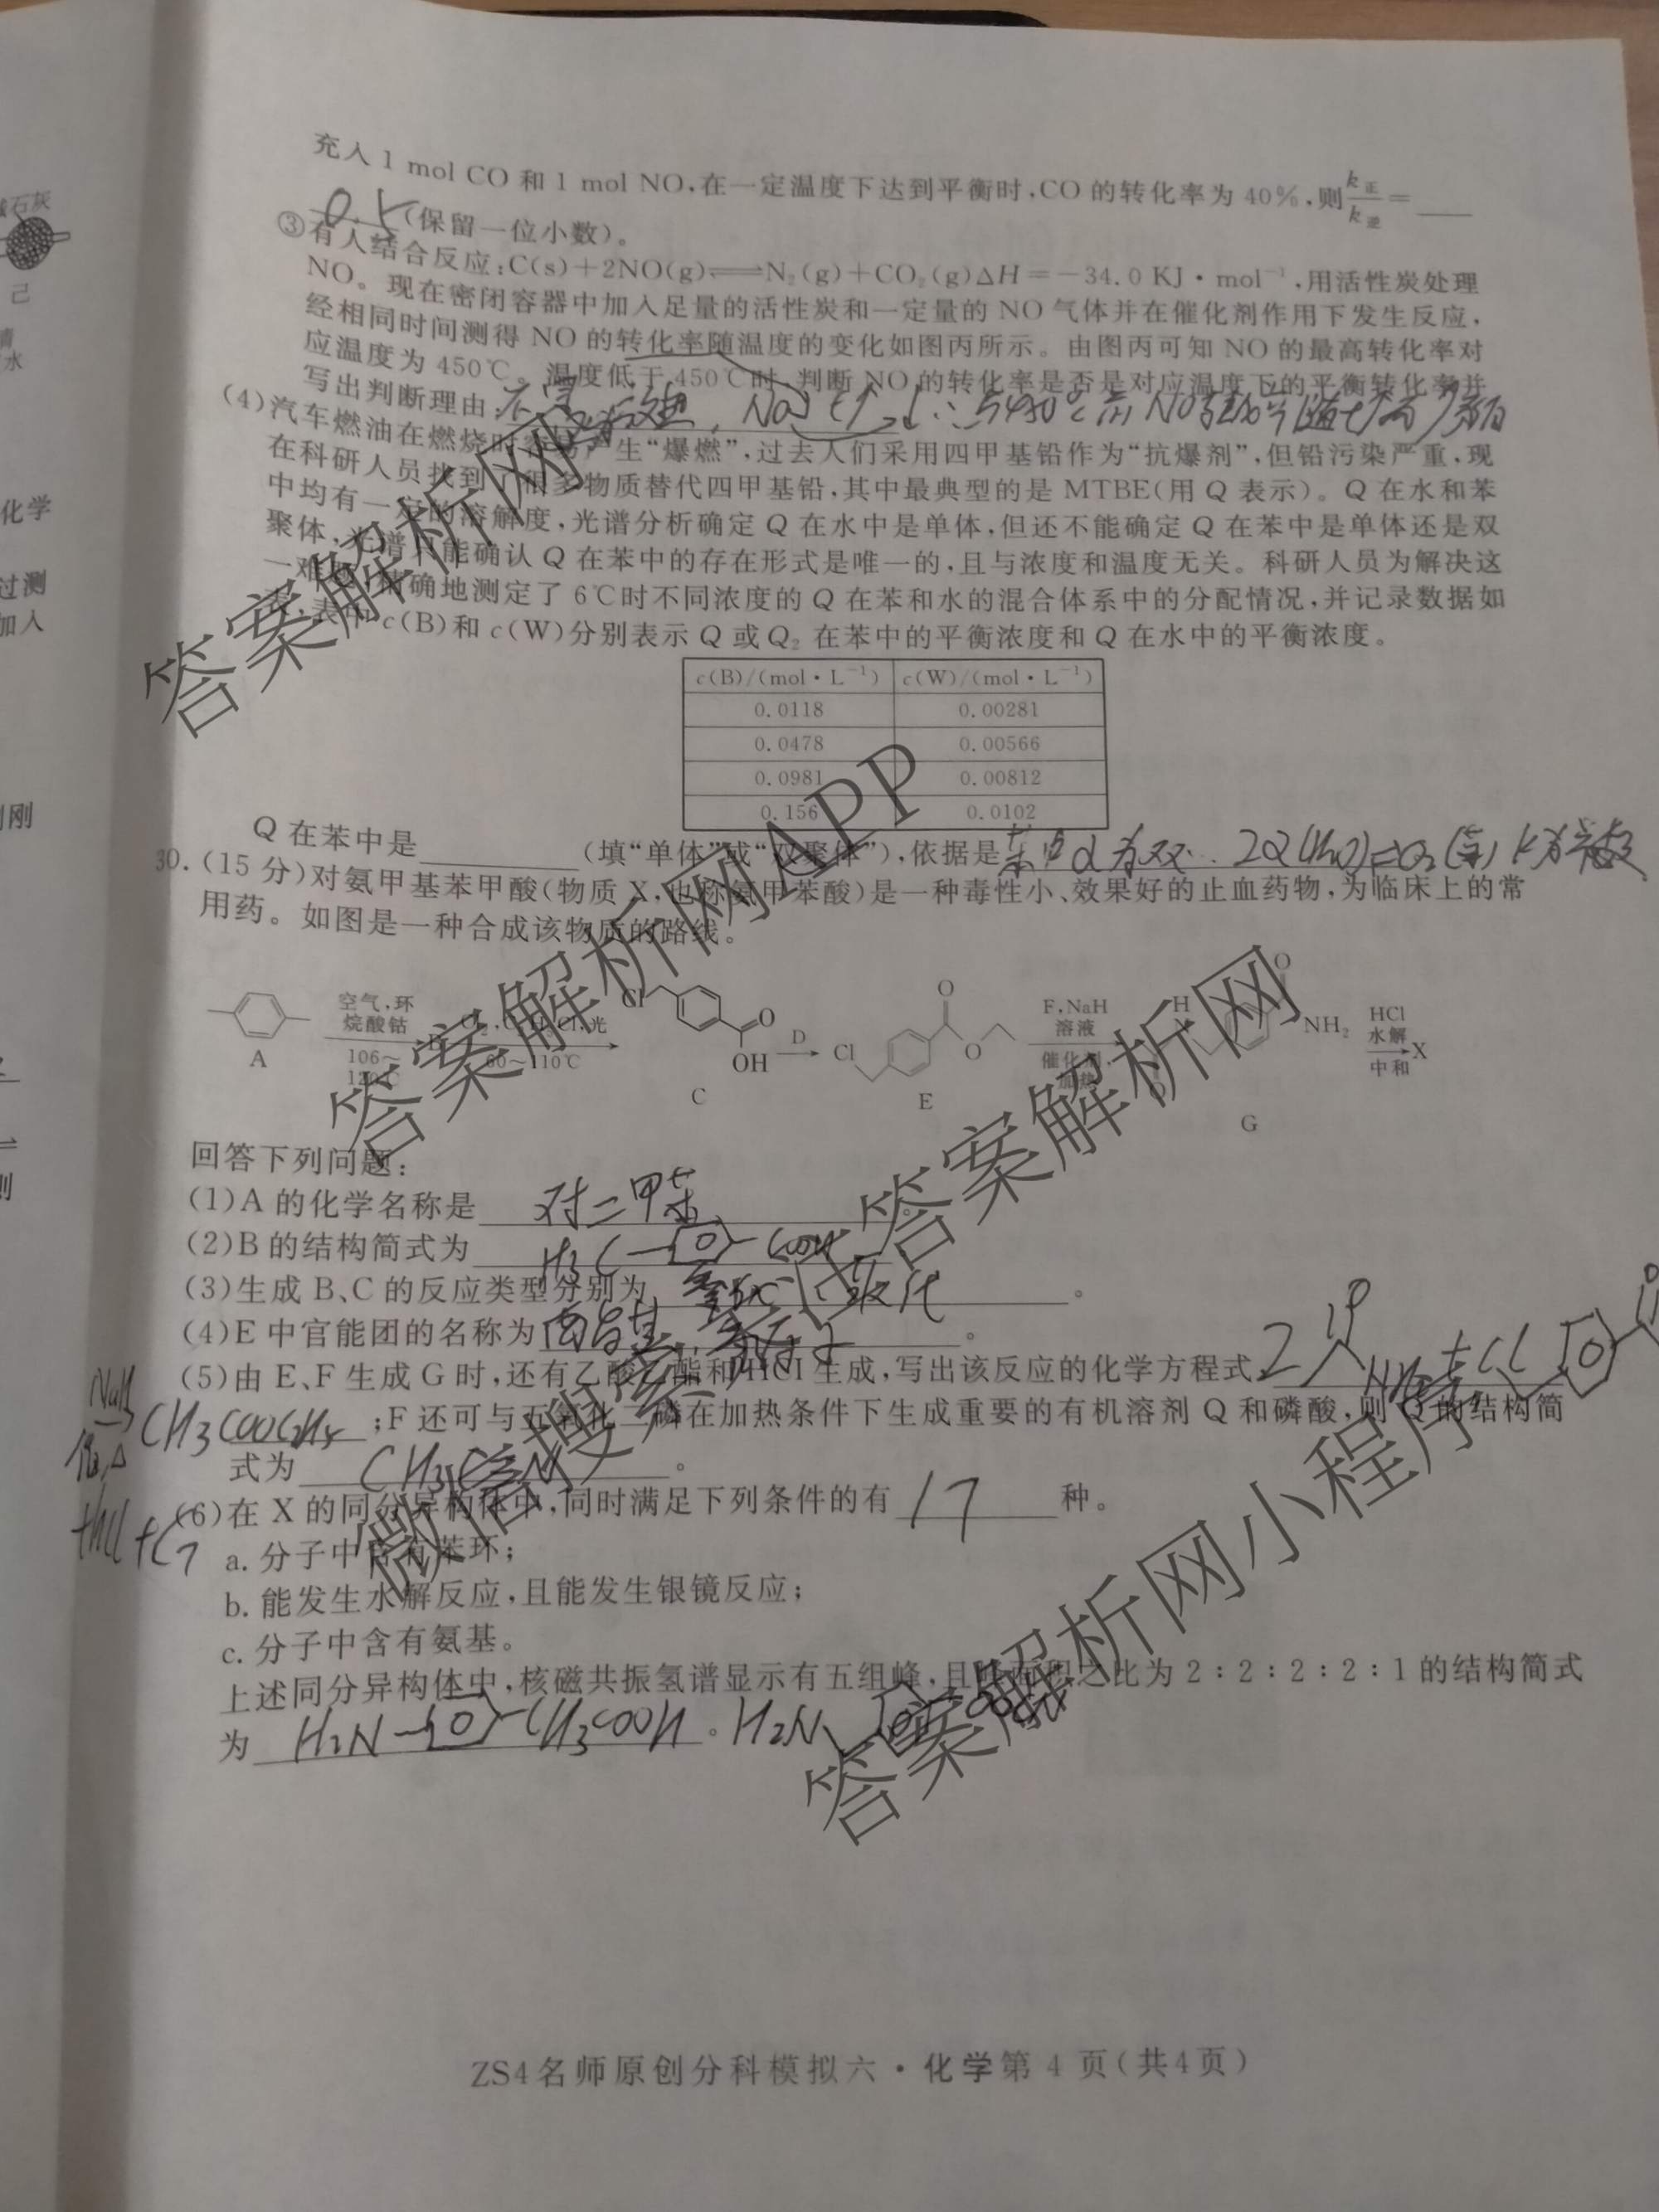 充入 1 mol CO 和 1 mol NO,在一定温度下达到平衡时,CO 的转化率为 40%,则k正/k逆=
(保留一位小数)。
③有人结合反应:C(s)+2NO(g)⇌N₂(g)+CO₂(g)ΔH=-34.0 KJ·mol⁻¹,用活性炭处理
NO。现在密闭容器中加入足量的活性炭和一定量的 NO 气体并在催化剂作用下发生反应,
经相同时间测得 NO 的转化率随温度的变化如图丙所示。由图丙可知 NO 的最高转化率对
应温度为 450℃。温度低于 450℃时,判断 NO 的转化率是否是对应温度下的平衡转化率并
写出判断理由:
(4)汽车燃油在燃烧时 产生“爆燃”,过去人们采用四甲基铅作为“抗爆剂”,但铅污染严重,现
在科研人员找到了很多物质替代四甲基铅,其中最典型的是 MTBE(用 Q 表示)。Q 在水和苯
中均有一定的溶解度,光谱分析确定 Q 在水中是单体,但还不能确定 Q 在苯中是单体还是双
聚体,光谱只能确认 Q 在苯中的存在形式是唯一的,且与浓度和温度无关。科研人员为解决这
一难 精确地测定了 6℃时不同浓度的 Q 在苯和水的混合体系中的分配情况,并记录数据如
表中 c(B)和 c(W)分别表示 Q 或 Q₂ 在苯中的平衡浓度和 Q 在水中的平衡浓度。
c(B)/(mol·L⁻¹) c(W)/(mol·L⁻¹)
0.0118 0.00281
0.0478 0.00566
0.0981 0.00812
0.156 0.0102
Q 在苯中是 (填“单体”或“双聚体”),依据是
30.(15 分)对氨甲基苯甲酸(物质 X,也称氨甲苯酸)是一种毒性小、效果好的止血药物,为临床上的常
用药。如图是一种合成该物质的路线。
A
空气,环
烷酸钴
106~
120℃
B
光
60~110℃
Cl
O
OH
C
D
Cl
O
O
E
F,NaH
溶液
催化剂,
加热
H
O
NH₂
O
G
HCl
水解
中和
X
回答下列问题:
(1)A 的化学名称是 对二甲苯
(2)B 的结构简式为 H3C COOH
(3)生成 B、C 的反应类型分别为 。
(4)E 中官能团的名称为 。
(5)由 E、F 生成 G 时,还有乙酸乙酯和 HCl 生成,写出该反应的化学方程式
CH3COOC2H5 ;F 还可与五氧化二磷在加热条件下生成重要的有机溶剂 Q 和磷酸,则 Q 的结构简
式为 。
(6)在 X 的同分异构体中,同时满足下列条件的有 17 种。
a. 分子中含有苯环;
b. 能发生水解反应,且能发生银镜反应;
c. 分子中含有氨基。
上述同分异构体中,核磁共振氢谱显示有五组峰,且峰面积之比为 2∶2∶2∶2∶1 的结构简式
为 H2N CH3COOH 。H2N
ZS4名师原创分科模拟六·化学第 4 页(共4页)
答案解析网
答案解析网APP
微信搜索 答案解析网
答案解析网小程序
碱石灰
己
水
化学
过测
加入